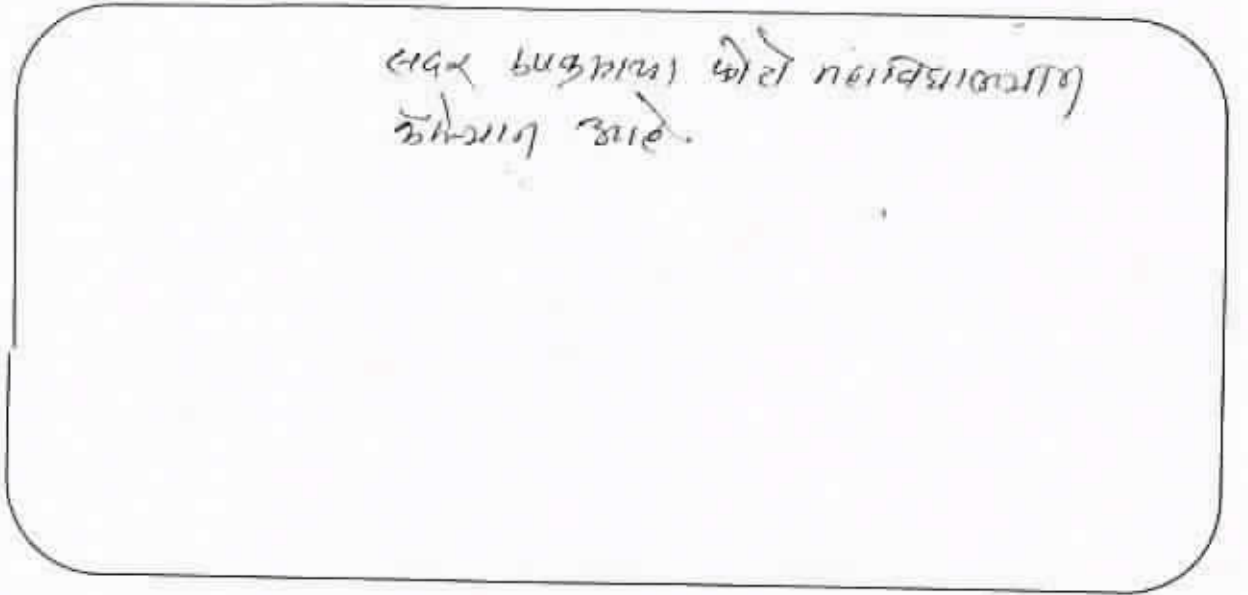 सदर उपक्रमाचा फोटो महाविद्यालयात
कॅमेऱ्यात आहे.